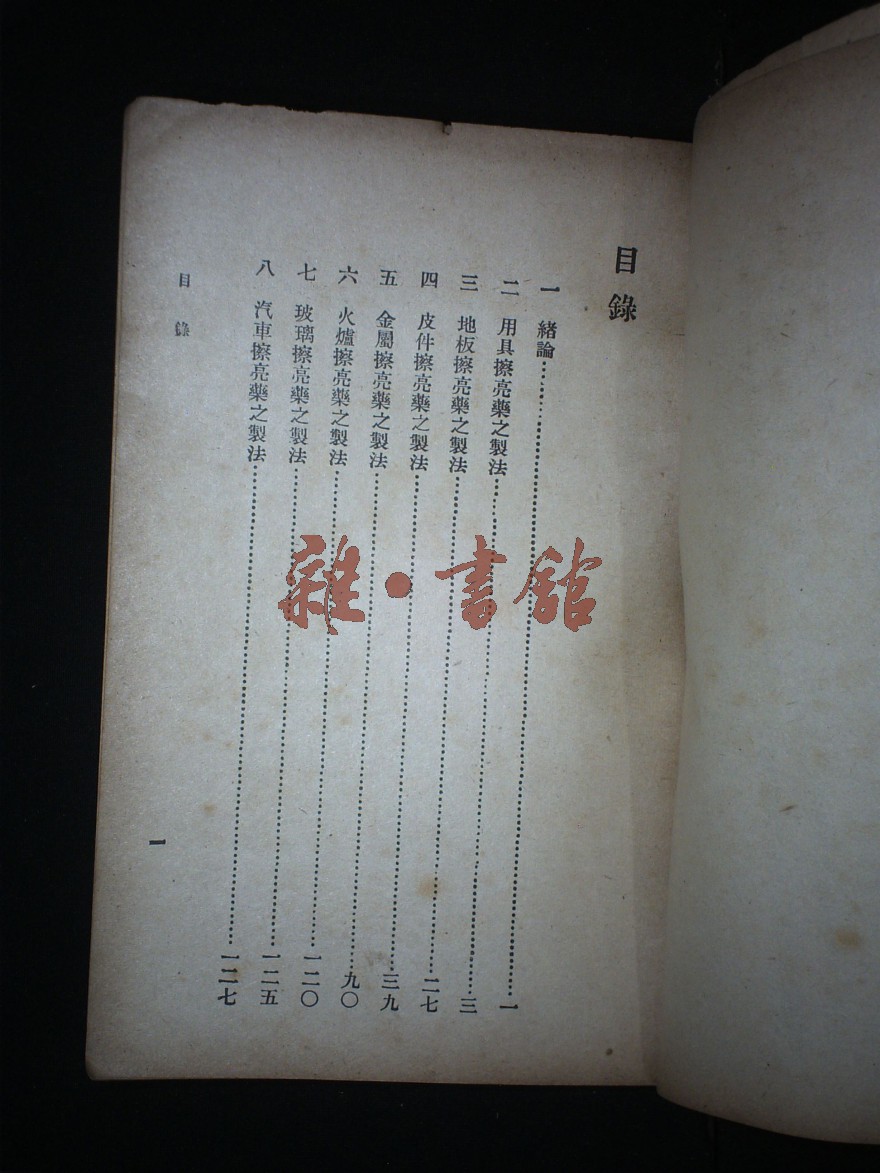 目錄
一 緒論…………一
二 用具擦亮藥之製法…………三
三 地板擦亮藥之製法…………二七
四 皮件擦亮藥之製法…………三九
五 金屬擦亮藥之製法…………九〇
六 火爐擦亮藥之製法…………一二〇
七 玻璃擦亮藥之製法…………一二五
八 汽車擦亮藥之製法…………一二七
目錄
一
雜·書館